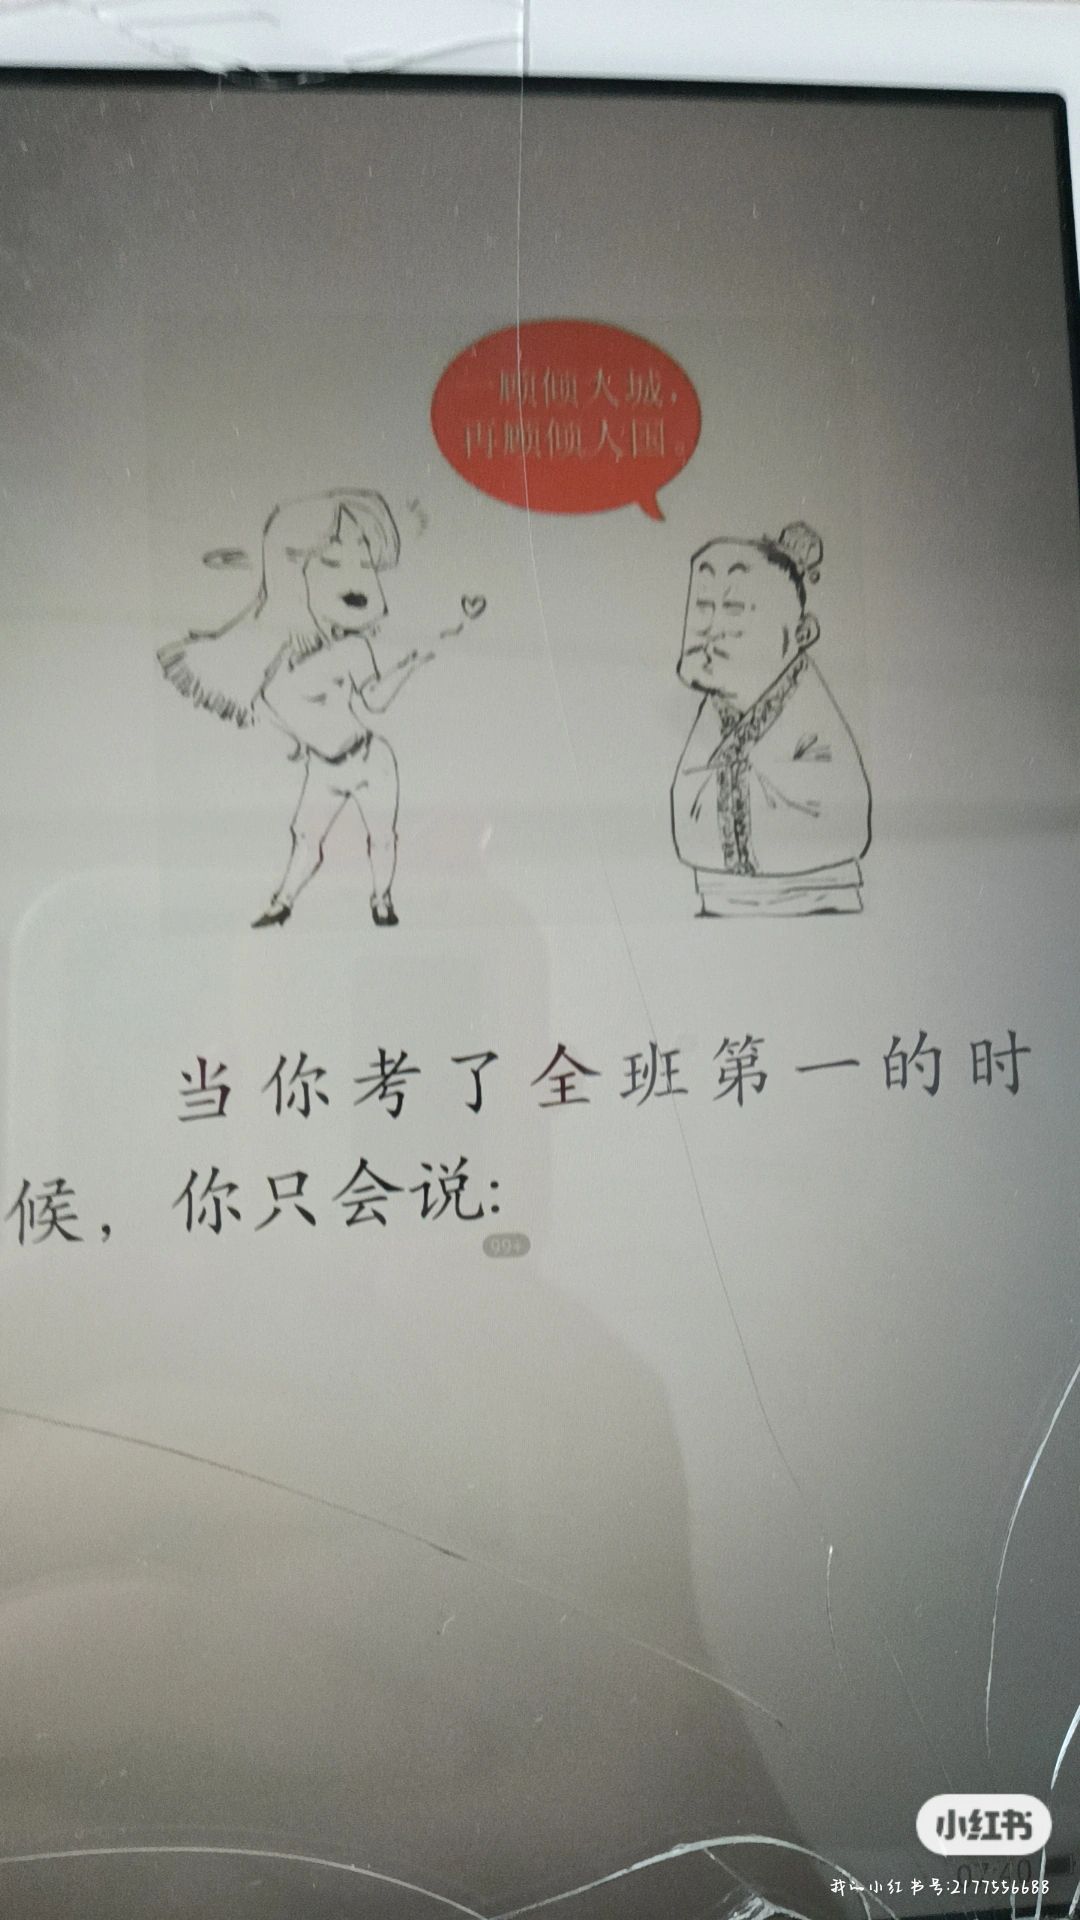 一顾倾人城，
再顾倾人国。
当你考了全班第一的时
候，你只会说：
99+
小红书
07:40
我的小红书号:2177556688